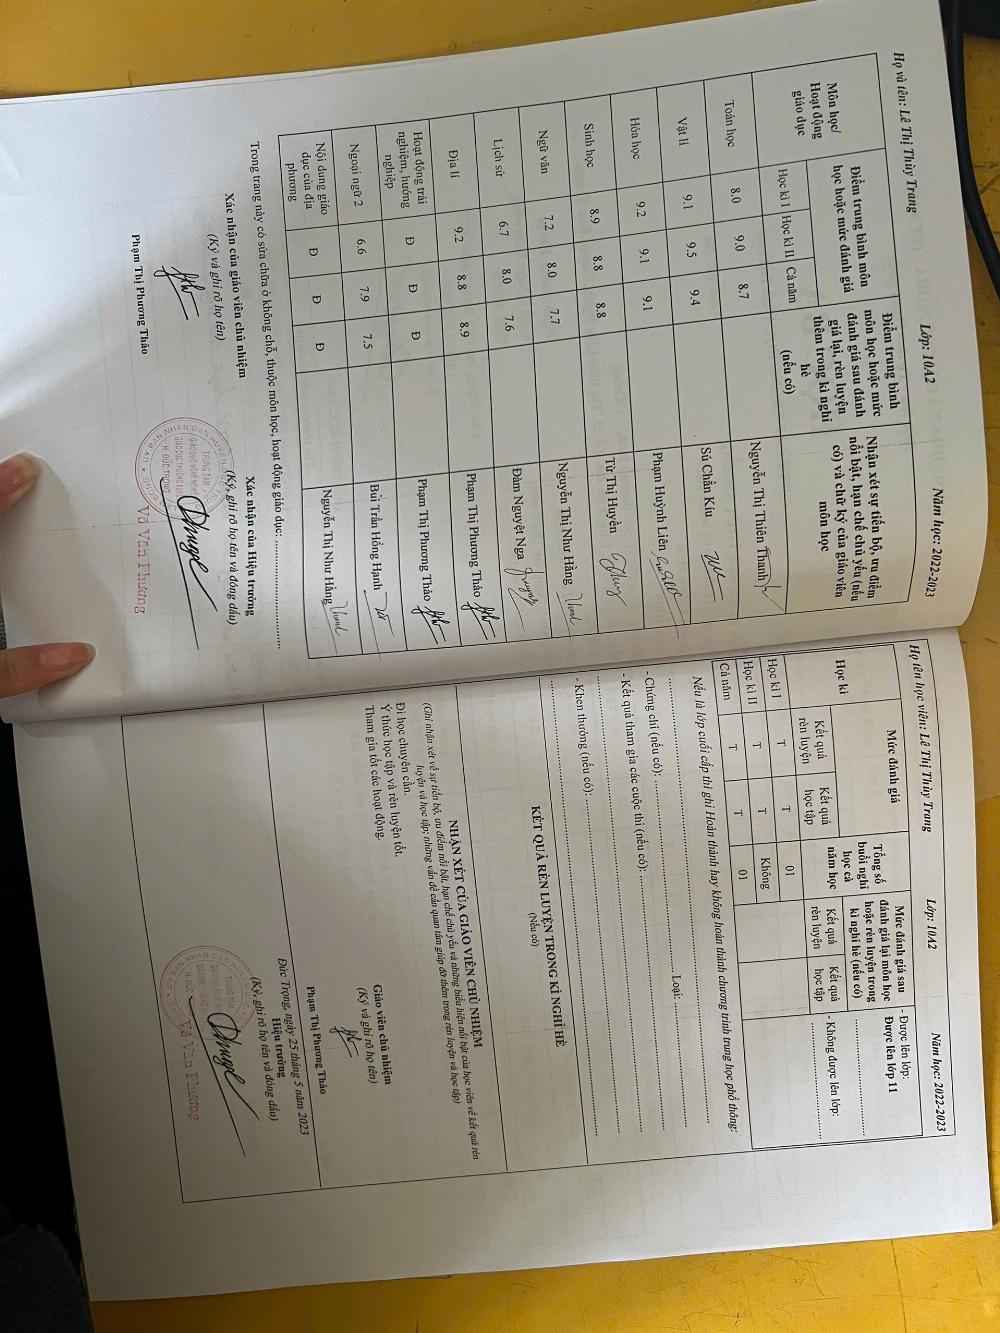 Họ và tên: Lê Thị Thùy Trang Lớp: 10A2 Năm học: 2022-2023
Môn học/ Hoạt động giáo dục
Điểm trung bình môn học hoặc mức đánh giá
Học kì I Học kì II Cả năm
Điểm trung bình môn học hoặc mức đánh giá sau đánh giá lại, rèn luyện thêm trong kì nghỉ hè (nếu có)
Nhận xét sự tiến bộ, ưu điểm nổi bật, hạn chế chủ yếu (nếu có) và chữ ký của giáo viên môn học
Toán học 8.0 9.0 8.7 Nguyễn Thị Thiên Thanh
Vật lí 9.1 9.5 9.4 Sú Chấn Kíu
Hóa học 9.2 9.1 9.1 Phạm Huỳnh Liên
Sinh học 8.9 8.8 8.8 Từ Thị Huyền
Ngữ văn 7.2 8.0 7.7 Nguyễn Thị Như Hằng
Lịch sử 6.7 8.0 7.6 Đàm Nguyệt Nga
Địa lí 9.2 8.8 8.9 Phạm Thị Phương Thảo
Hoạt động trải nghiệm, hướng nghiệp Đ Đ Đ Phạm Thị Phương Thảo
Ngoại ngữ 2 6.6 7.9 7.5 Bùi Trần Hồng Hạnh
Nội dung giáo dục của địa phương Đ Đ Đ Nguyễn Thị Như Hằng
Trong trang này có sửa chữa ở không chỗ, thuộc môn học, hoạt động giáo dục: ..........
Xác nhận của giáo viên chủ nhiệm
(Ký và ghi rõ họ tên)
Phạm Thị Phương Thảo
Xác nhận của Hiệu trưởng
(Ký, ghi rõ họ tên và đóng dấu)
Võ Văn Phương
Họ tên học viên: Lê Thị Thùy Trang Lớp: 10A2 Năm học: 2022-2023
Học kì
Mức đánh giá
Kết quả rèn luyện
Kết quả học tập
Tổng số buổi nghỉ học cả năm học
Mức đánh giá sau đánh giá lại môn học hoặc rèn luyện trong kì nghỉ hè (nếu có)
Kết quả rèn luyện
Kết quả học tập
- Được lên lớp:
Được lên lớp 11
..........
- Không được lên lớp:
..........
Học kì I T T 01
Học kì II T T Không
Cả năm T T 01
Nếu là lớp cuối cấp thì ghi Hoàn thành hay không hoàn thành chương trình trung học phổ thông:
..........
- Chứng chỉ (nếu có): .......... Loại: ..........
- Kết quả tham gia các cuộc thi (nếu có): ..........
..........
- Khen thưởng (nếu có): ..........
..........
KẾT QUẢ RÈN LUYỆN TRONG KÌ NGHỈ HÈ
(Nếu có)
NHẬN XÉT CỦA GIÁO VIÊN CHỦ NHIỆM
(Ghi nhận xét về sự tiến bộ, ưu điểm nổi bật, hạn chế chủ yếu và những biểu hiện nổi bật của học viên về kết quả rèn
luyện và học tập; những vấn đề cần quan tâm giúp đỡ thêm trong rèn luyện và học tập)
Đi học chuyên cần.
Ý thức học tập và rèn luyện tốt.
Tham gia tốt các hoạt động.
Giáo viên chủ nhiệm
(Ký và ghi rõ họ tên)
Phạm Thị Phương Thảo
Đức Trọng, ngày 25 tháng 5 năm 2023
Hiệu trưởng
(Ký, ghi rõ họ tên và đóng dấu)
Võ Văn Phương